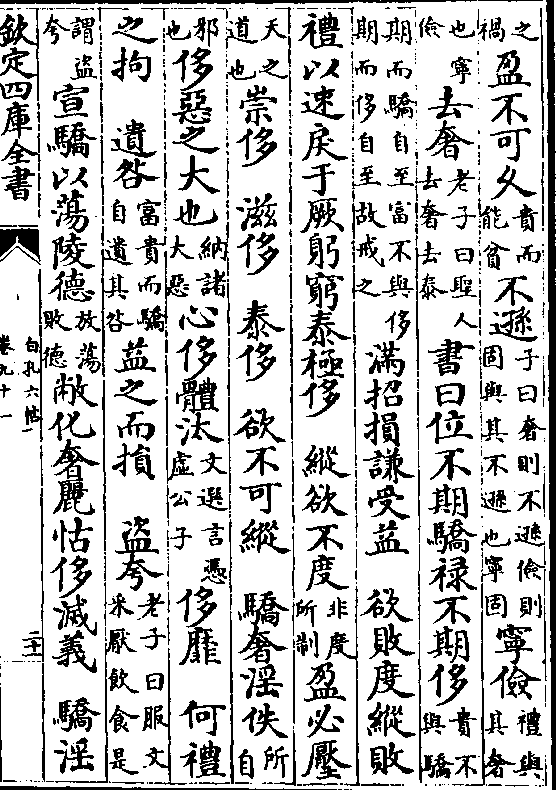 之禍盈不可久貴而能貧不遜子曰奢則不遜儉則固與其不遜也寧固寧儉禮與其奢
也寧儉去奢老子曰聖人去奢去泰書曰位不期驕祿不期侈貴不與驕
期而驕自至富不與侈期而侈自至故戒之滿招損謙受益 欲敗度縱敗
禮以速戾于厥躬窮泰極侈 縱欲不度非度所制盈必壓
天之道也崇侈 滋侈 泰侈 欲不可縱 驕奢淫佚所自
邪也侈惡之大也納諸大惡心侈體汰文選言憑虛公子侈靡 何禮
之拘 遺咎富貴而驕自遺其咎益之而損 盜夸老子曰服文采厭飲食是
謂盜夸宣驕以蕩陵德放蕩敗德敝化奢麗怙侈滅義 驕淫
欽定四庫全書
白孔六帖
卷九十一
二十一